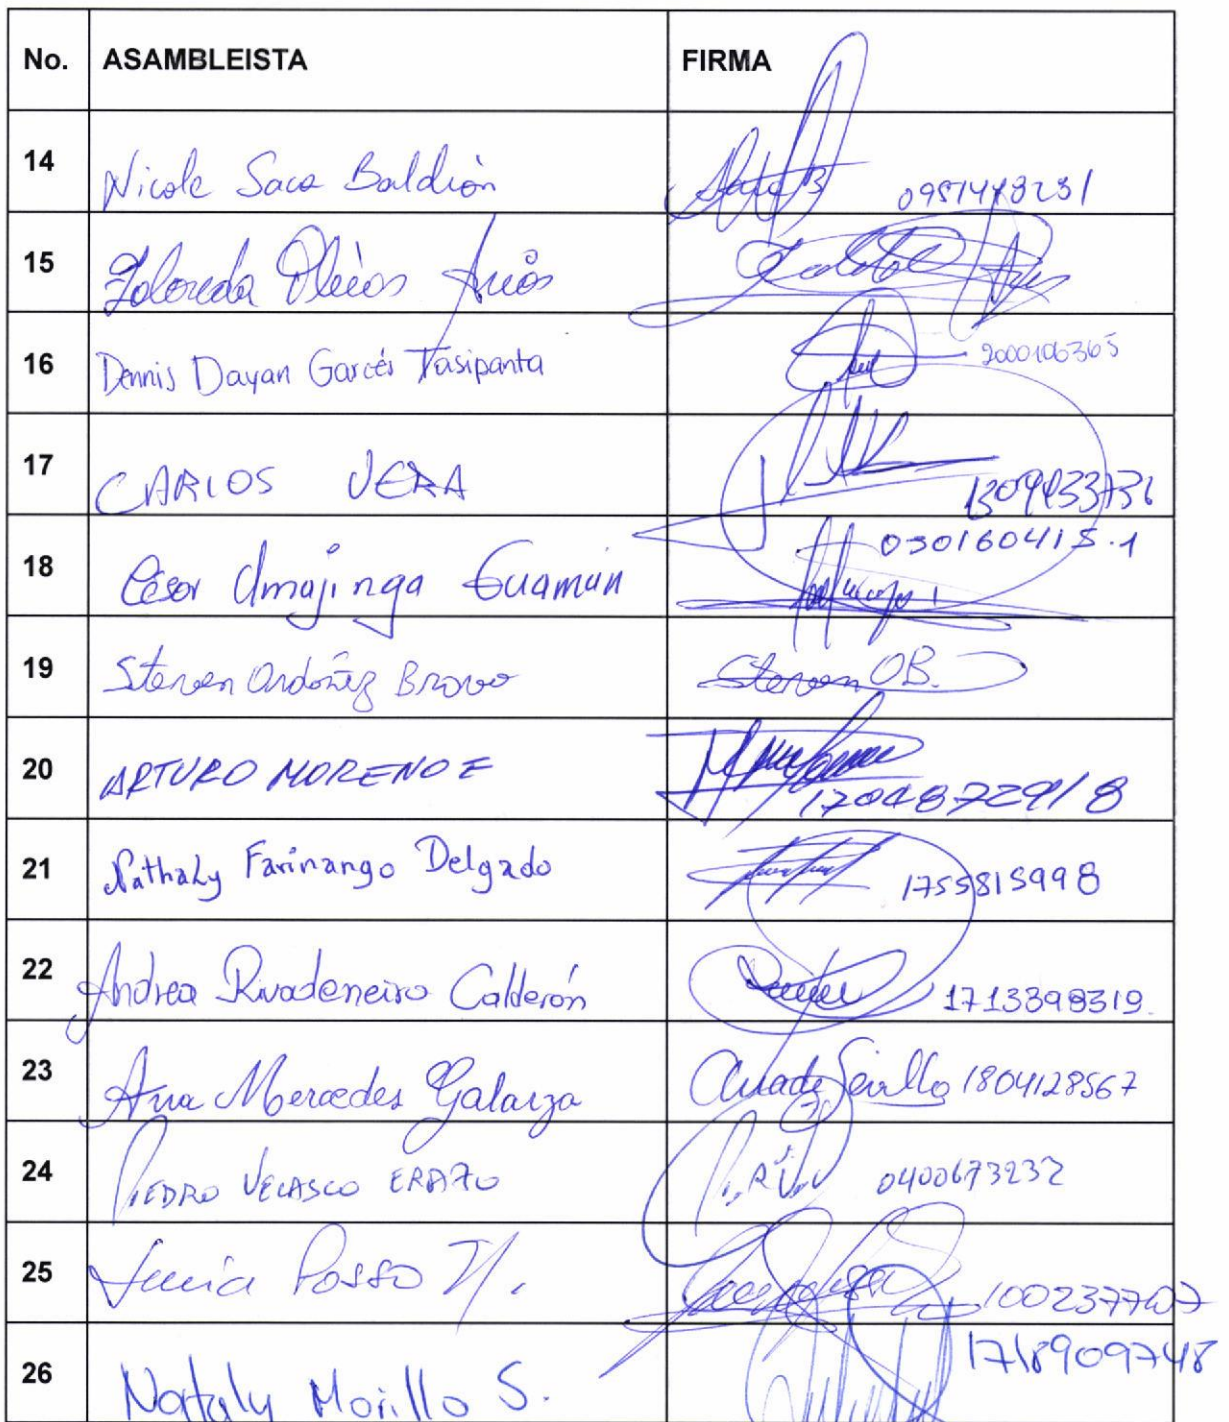 No. ASAMBLEISTA FIRMA
14 Nicole Saca Baldión 0951448231
15 Arias
16 Dennis Dayan Garcés Tasipanta 2000106365
17 CARLOS VERA
18 César Umajinga Guamán 050160415-1
19 Steven Ordóñez Bravo Steven OB.
20 ARTURO MORENO E 1704872918
21 Nathaly Farinango Delgado 1755815998
22 Andrea Rivadeneira Calderón 1713398319
23 Ana Mercedes Galarza 1804128567
24 PIEDRO VELASCO ERAZO 0400673232
25 Lucía Posso N.
26 Nataly Morillo S. 1718909748